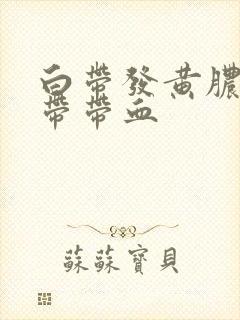 白帶發黃膿
帶帶血
蘇蘇寶貝